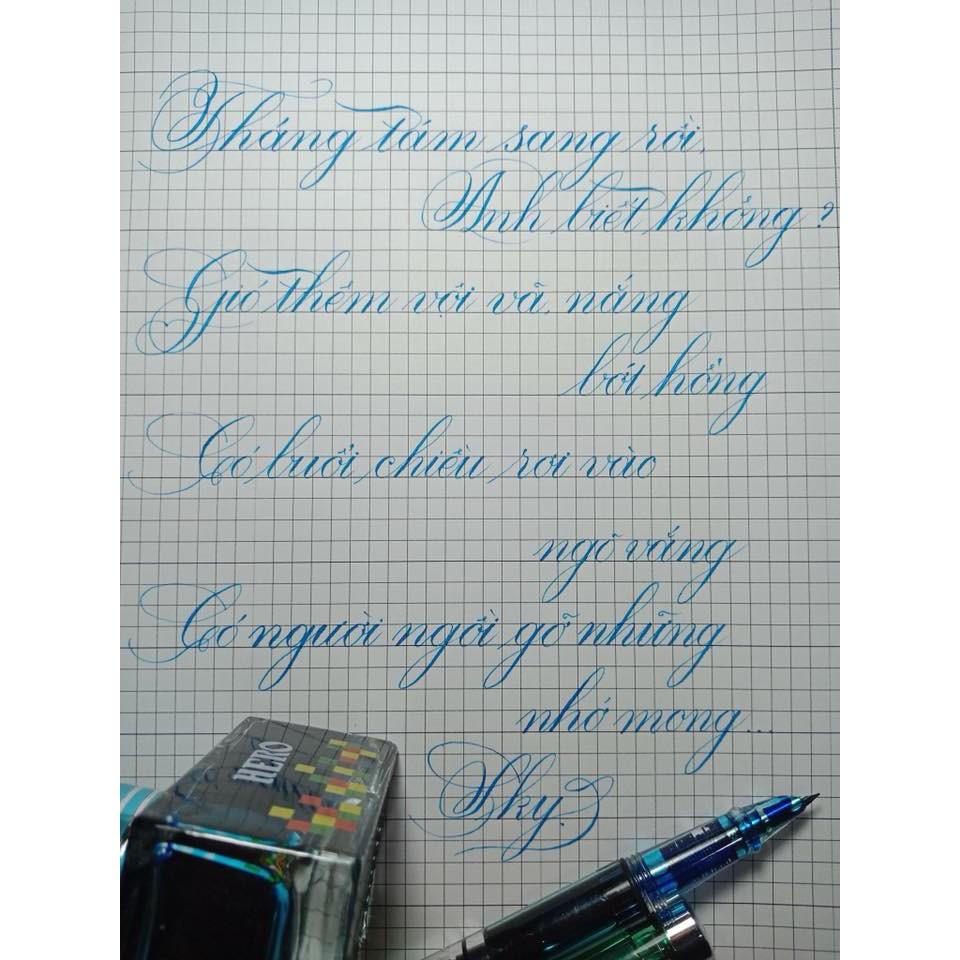 Tháng tám sang rồi,
Anh biết không?
Gió thêm vội vã, nắng
bớt hồng
Có buổi chiều rơi vào
ngõ vắng
Có người ngồi gỡ những
nhớ mong...
Sky.
HERO